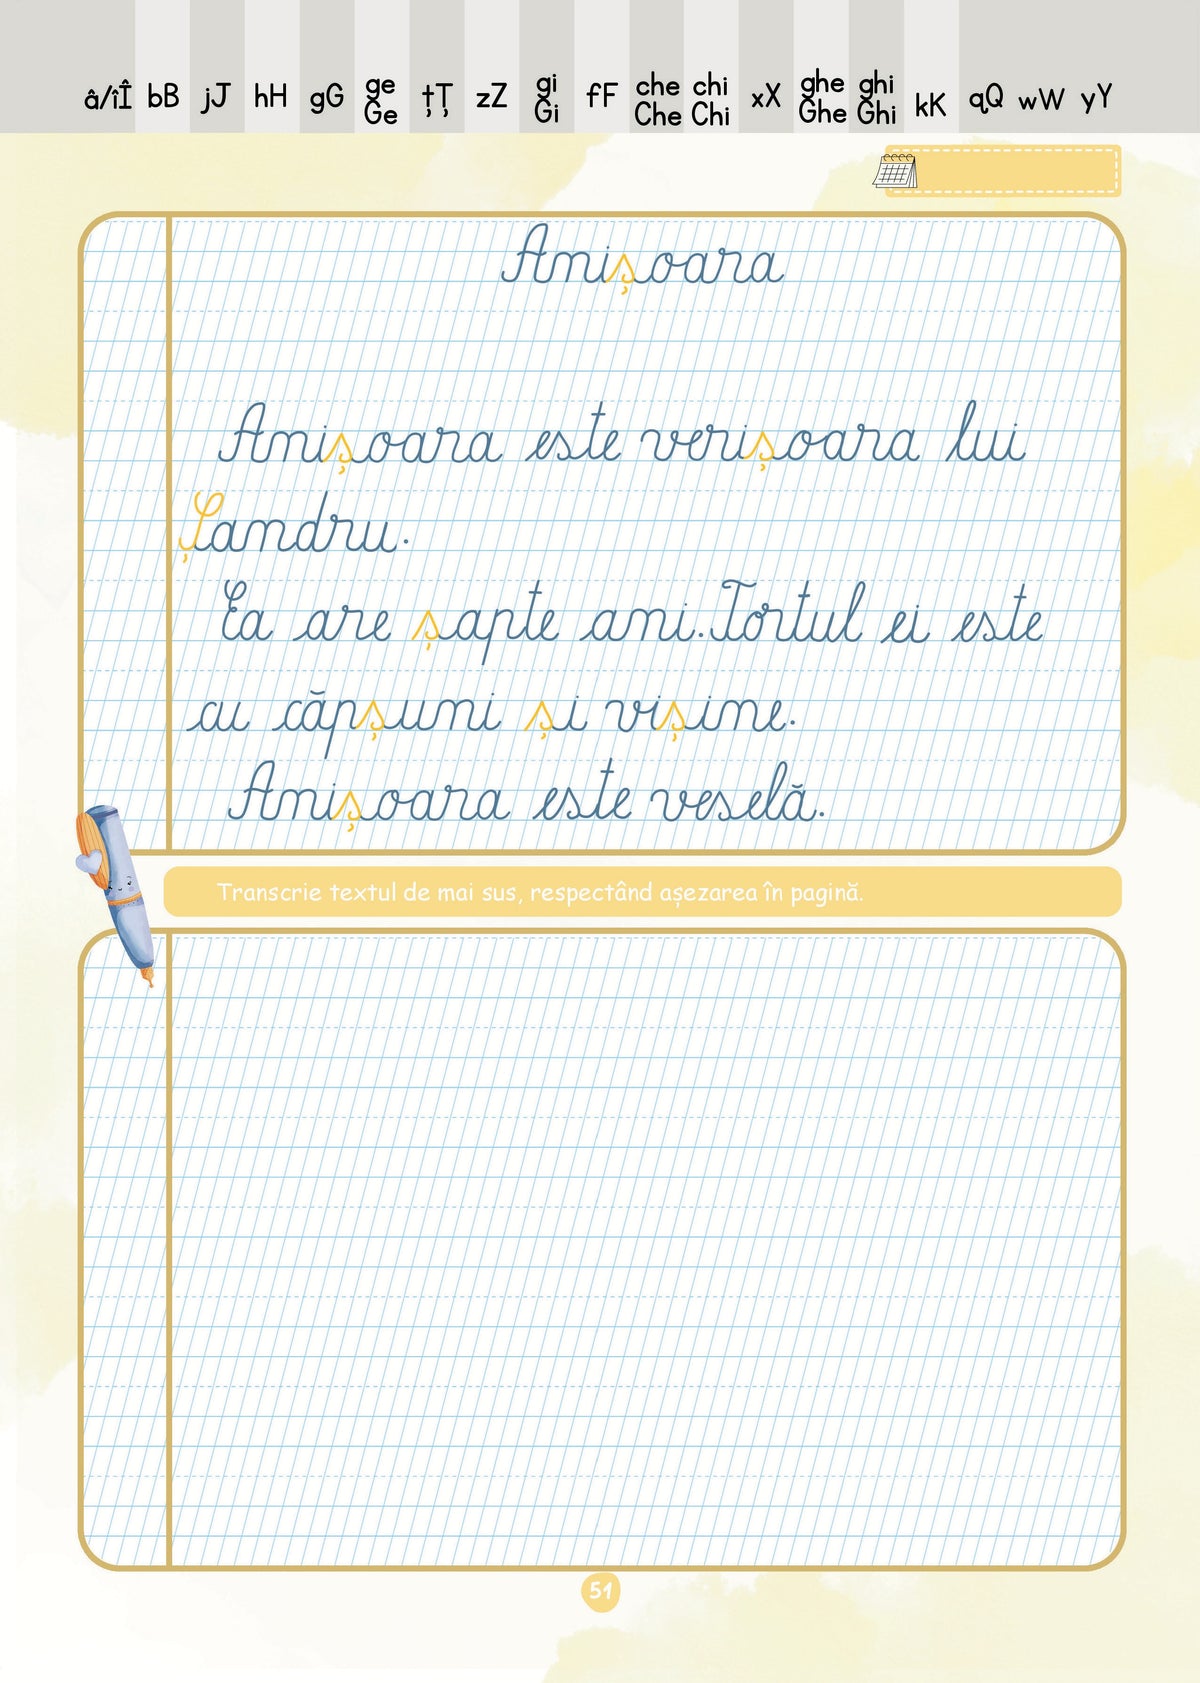 â/îÎ bB jJ hH gG ge Ge țȚ zZ gi Gi fF che Che chi Chi xX ghe Ghe ghi Ghi kK qQ wW yY
Anișoara
Anișoara este verișoara lui
Șandru.
Ea are șapte ani.Tortul ei este
cu căpșuni și vișine.
Anișoara este veselă.
Transcrie textul de mai sus, respectând așezarea în pagină.
51